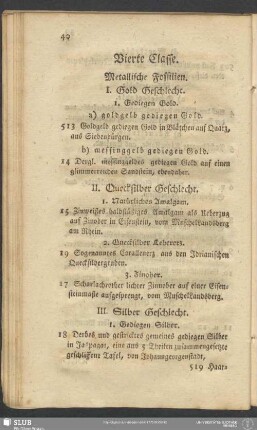 40
Vierte Classe.
Metallische Fossilien.
I. Gold Geschlecht.
1. Gediegen Gold.
a) goldgelb gediegen Gold.
513 Goldgelb gediegen Gold in Blätchen auf Quarz,
aus Siebenbürgen.
b) messinggelb gediegen Gold.
14 Dergl. messinggelbes gediegen Gold auf einen
glimmerreichen Sandstein, ebendaher.
II. Quecksilber Geschlecht.
1. Natürliches Amalgam.
15 Zinweißes halbflüssiges Amalgam als Ueberzug
auf Zinober in Eisenstein, vom Muschellandsberg
am Rhein.
2. Quecksilber Lebererz.
16 Sogenanntes Corallenerz aus den Idrianischen
Quecksilbergruben.
3. Zinober.
17 Scharlachrother lichter Zinnober auf einer Eisen-
steinmaße aufgesprengt, vom Muschellandsberg.
III. Silber Geschlecht.
1. Gediegen Silber.
18 Derbes und gestricktes gemeines gediegen Silber
in Jaspagat, eine aus 3 Theilen zusammengesetzte
geschliffene Tafel, von Johanngeorgenstadt,
519 Haar-
SLUB